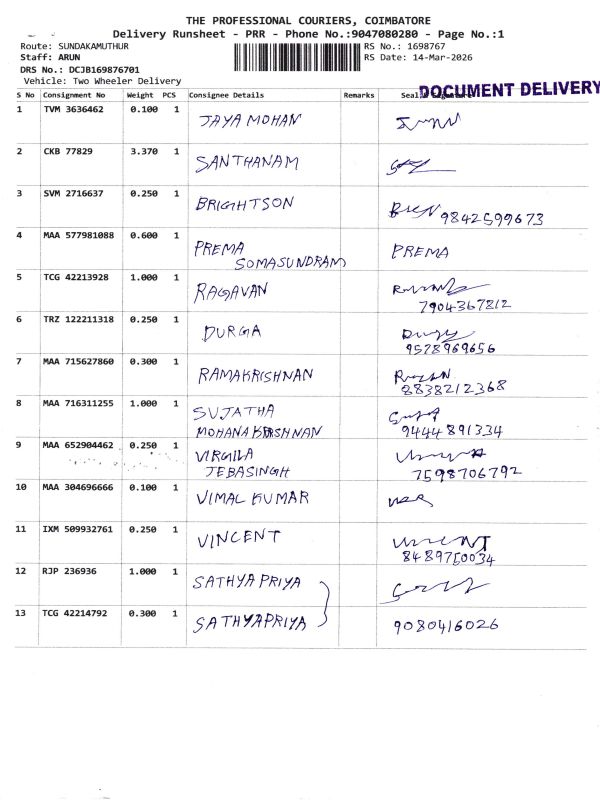 THE PROFESSIONAL COURIERS, COIMBATORE
Delivery Runsheet - PRR - Phone No.:9047080280 - Page No.:1
Route: SUNDAKAMUTHUR
RS No.: 1698767
Staff: ARUN
RS Date: 14-Mar-2026
DRS No.: DCJB169876701
Vehicle: Two Wheeler Delivery
DOCUMENT DELIVERY
S No Consignment No Weight PCS Consignee Details Remarks Seal
1 TVM 3636462 0.100 1 JAYA MOHAN
2 CKB 77829 3.370 1 SANTHANAM
3 SVM 2716637 0.250 1 BRIGHTSON
9842599673
4 MAA 577981088 0.600 1 PREMA PREMA
SOMASUNDRAM
5 TCG 42213928 1.000 1 RAGAVAN
7904367812
6 TRZ 122211318 0.250 1 DURGA
9578969656
7 MAA 715627860 0.300 1 RAMAKRISHNAN
8838212368
8 MAA 716311255 1.000 1 SUJATHA
MOHANAKRISHNAN 9444891334
9 MAA 652904462 0.250 1 VIRGILA
JEBASINGH 7598706792
10 MAA 304696666 0.100 1 VIMAL KUMAR
11 IXM 509932761 0.250 1 VINCENT
8489750034
12 RJP 236936 1.000 1 SATHYA PRIYA
13 TCG 42214792 0.300 1 SATHYAPRIYA 9080416026